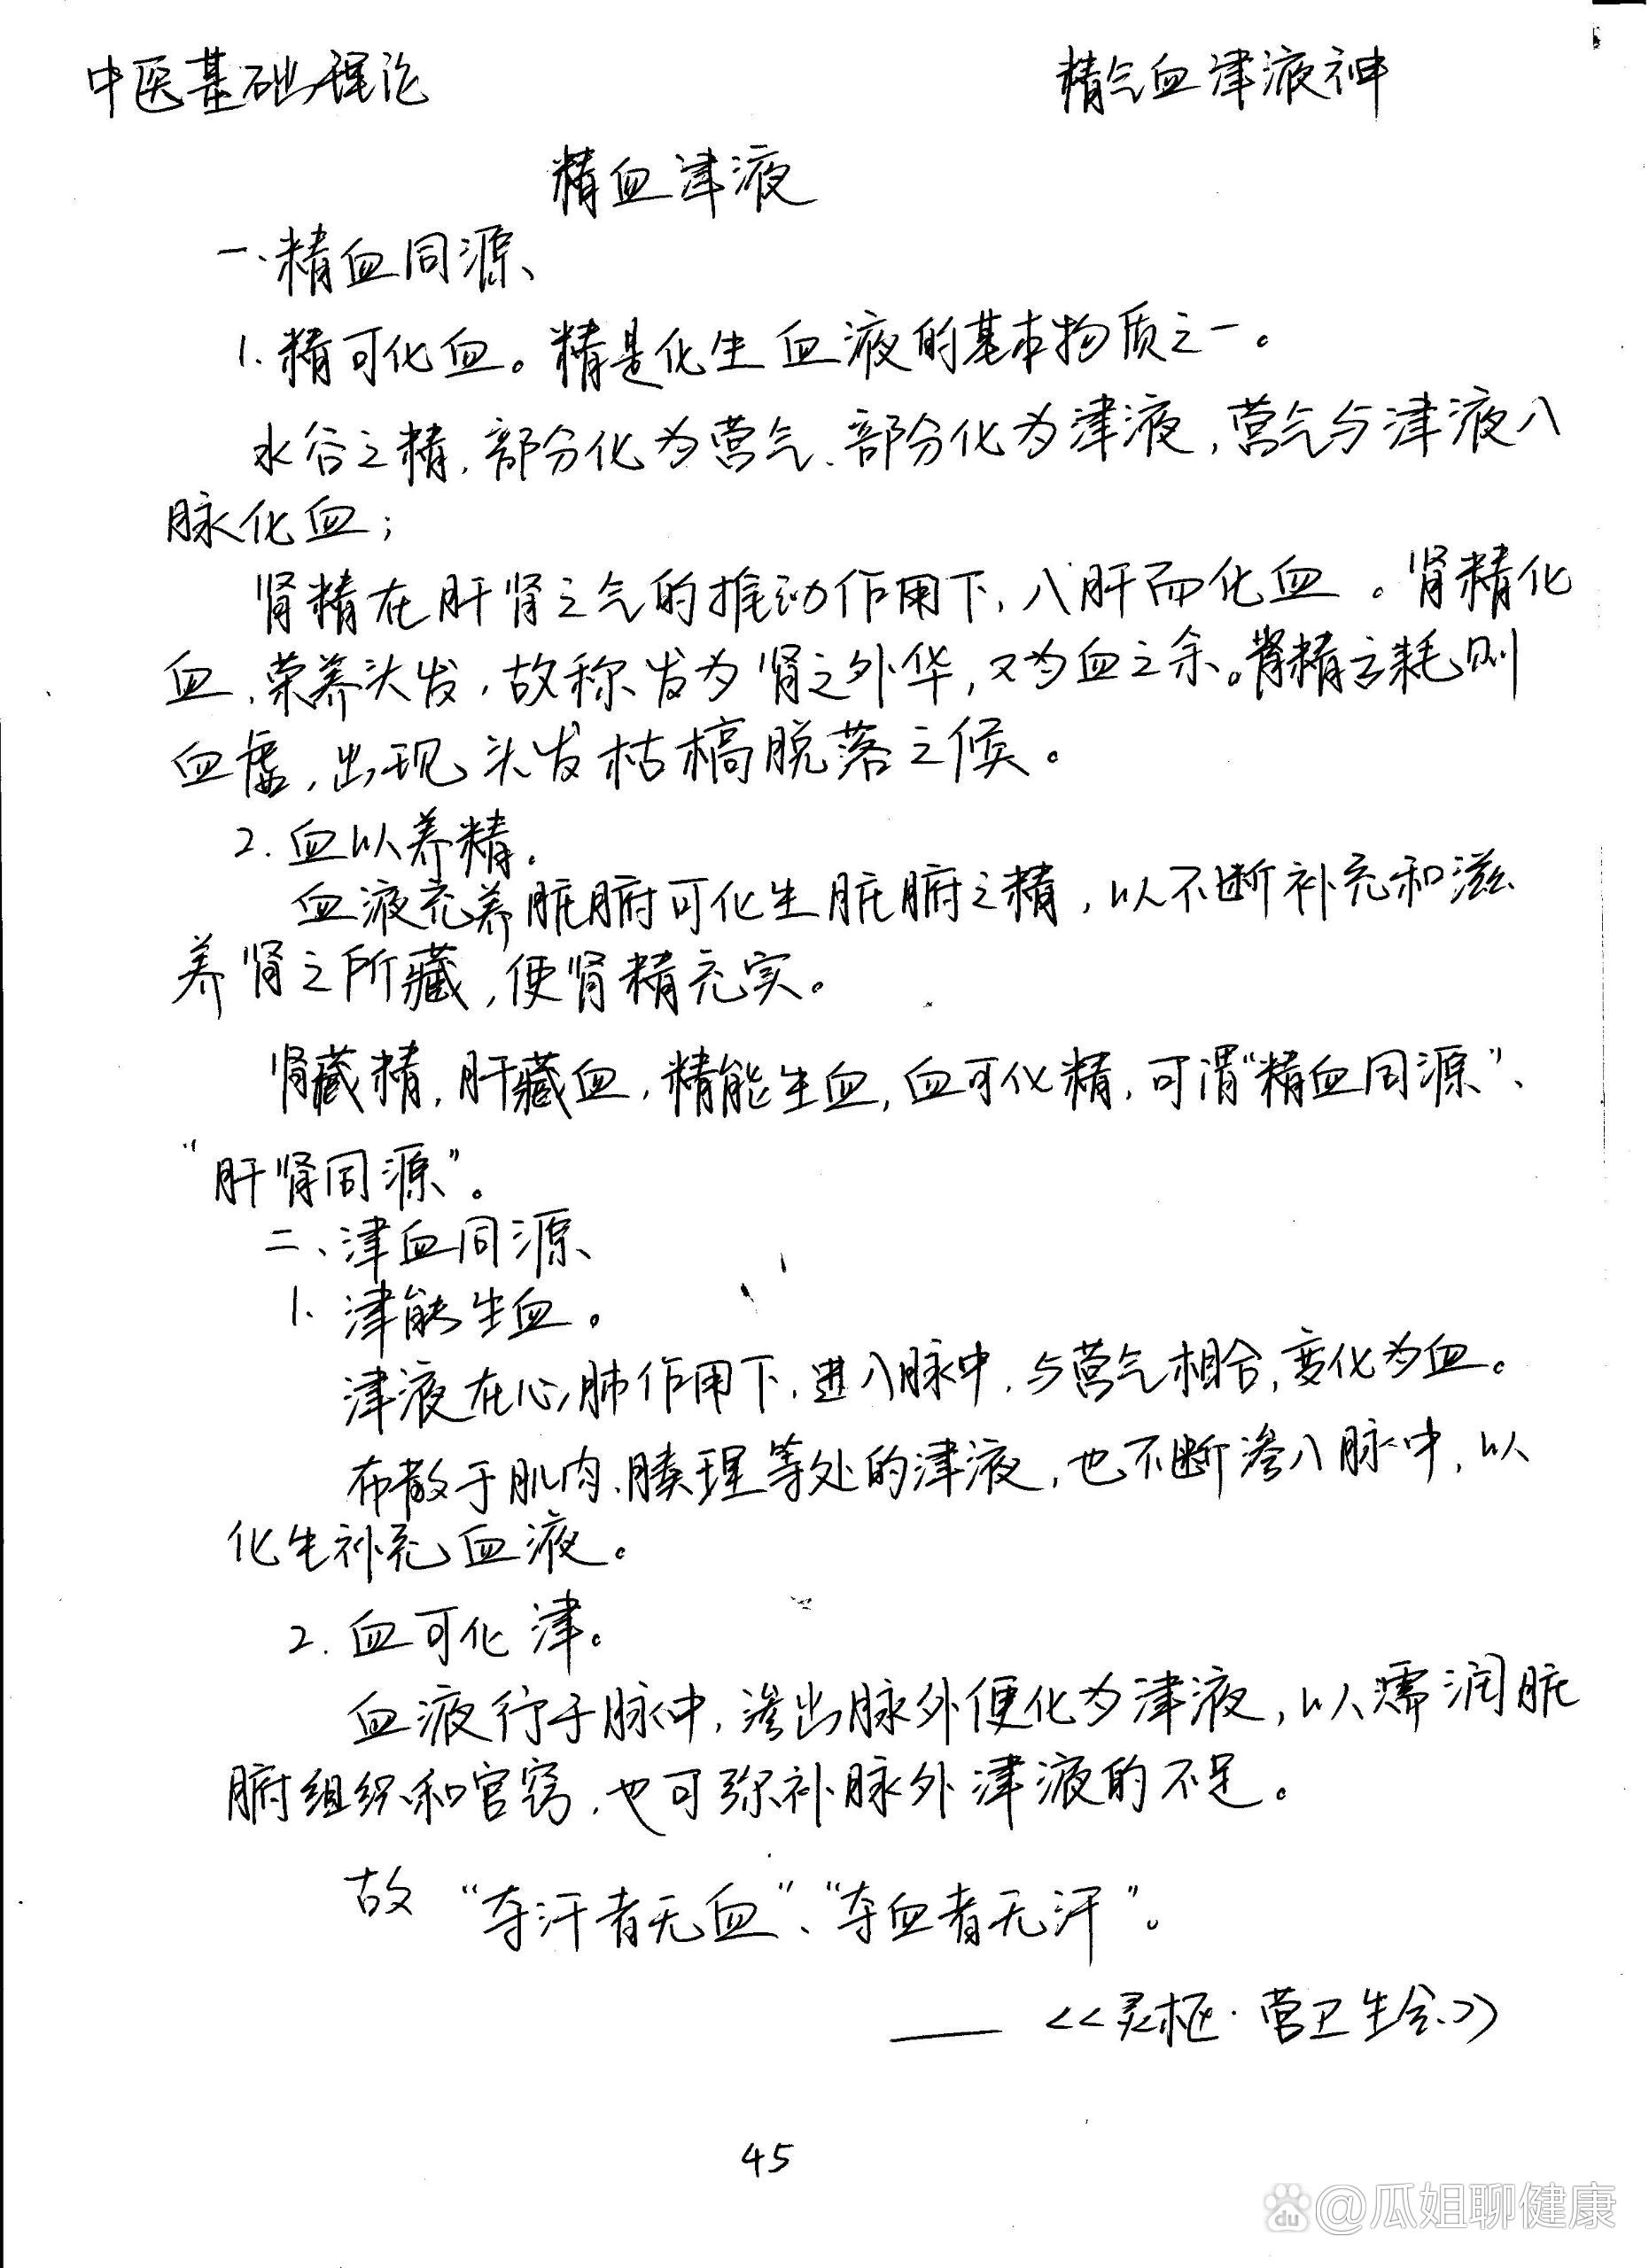 中医基础理论 精气血津液神
精血津液
一、精血同源
1. 精可化血。精是化生血液的基本物质之一。
水谷之精,部分化为营气、部分化为津液,营气与津液入
脉化血;
肾精在肝肾之气的推动作用下,入肝而化血。肾精化
血,荣养头发,故称发为肾之外华,又为血之余。肾精亏耗则
血虚,出现头发枯槁脱落之候。
2. 血以养精。
血液充养脏腑可化生脏腑之精,以不断补充和滋
养肾之所藏,使肾精充实。
肾藏精,肝藏血,精能生血,血可化精,可谓“精血同源”、
“肝肾同源”。
二、津血同源
1. 津能生血。
津液在心肺作用下,进入脉中,与营气相合,变化为血。
布散于肌肉、腠理等处的津液,也不断渗入脉中,以
化生补充血液。
2. 血可化津。
血液行于脉中,渗出脉外便化为津液,以濡润脏
腑组织和官窍,也可弥补脉外津液的不足。
故“夺汗者无血”、“夺血者无汗”。
——《灵枢·营卫生会》
45
du @瓜姐聊健康